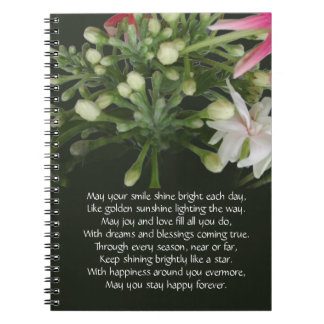 May your smile shine bright each day,
Like golden sunshine lighting the way.
May joy and love fill all you do,
With dreams and blessings coming true.
Through every season, near or far,
Keep shining brightly like a star.
With happiness around you evermore,
May you stay happy forever.